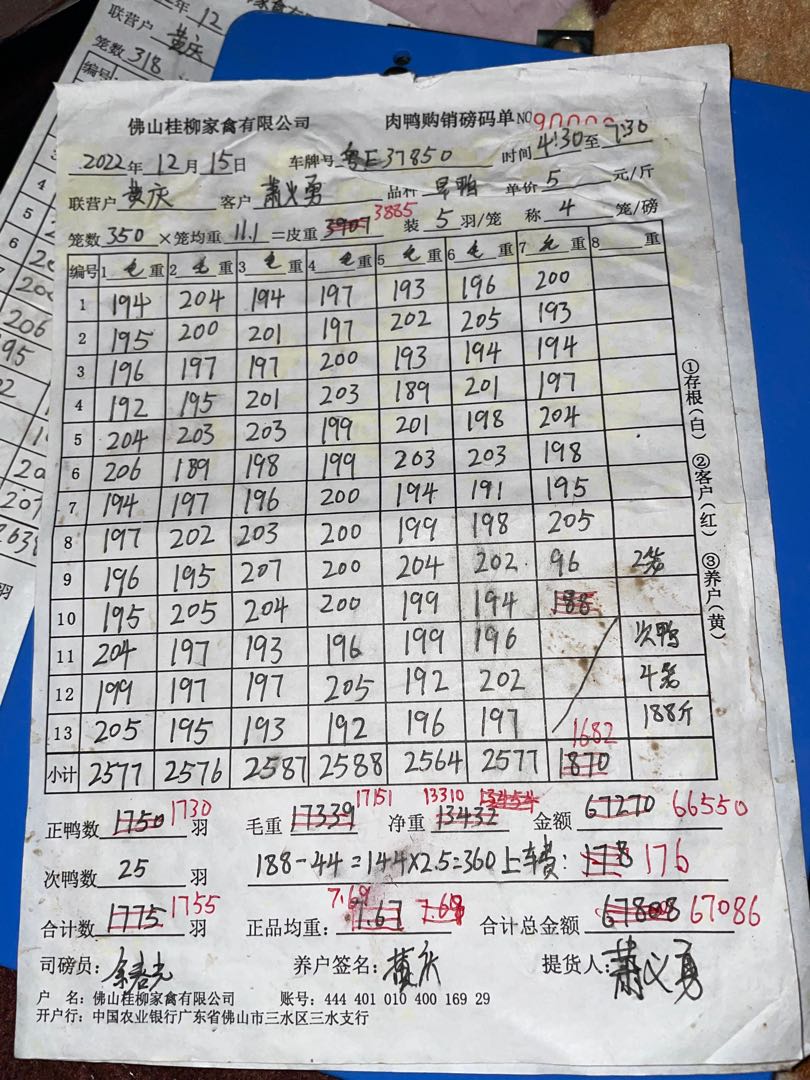 年 12
联营户 黄庆
笼数 318
编号
佛山桂柳家禽有限公司 肉鸭购销磅码单 NO
2022年 12月 15日 车牌号 粤E37850 时间 4:30 至 7:30
联营户 黄庆 客户 萧义勇 品种 单价 5 元/斤
笼数 350 ×笼均重 11.1 =皮重 3907 3885 装 5 羽/笼 称 4 笼/磅
编号 1 毛 重 2 毛 重 3 毛 重 4 毛 重 5 毛 重 6 毛 重 7 毛 重 8 重
1 194 204 194 197 193 196 200
2 195 200 201 197 202 205 193
3 196 197 197 200 193 194 194
4 192 195 201 203 189 201 197
5 204 203 203 199 201 198 204
6 206 189 198 199 203 203 198
7 194 197 196 200 194 191 195
8 197 202 203 200 199 198 205
9 196 195 207 200 204 202 96 2笼
10 195 205 204 200 199 194 188
11 204 197 193 196 199 196 次鸭
12 199 197 197 205 192 202 4笼
13 205 195 193 192 196 197 188斤
1682
小计 2577 2576 2587 2588 2564 2577 1870
正鸭数 1750 1730 羽 毛重 17339 17151 净重 13432 13310 金额 67270 66550
次鸭数 25 羽 188-44=144×2.5=360 上车费: 178 176
合计数 1775 1755 羽 正品均重: 7.67 7.69 合计总金额 67808 67086
司磅员: 养户签名: 黄庆 提货人: 萧义勇
户 名: 佛山桂柳家禽有限公司 账号: 444 401 010 400 169 29
开户行: 中国农业银行广东省佛山市三水区三水支行
①存根(白) ②客户(红) ③养户(黄)